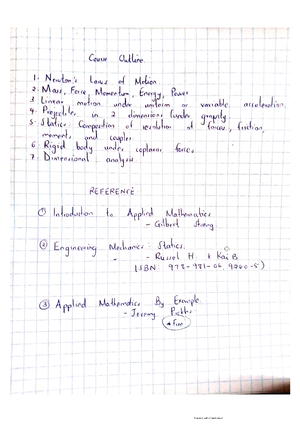 Course Outline
1. Newton's Laws of Motion.
2. Mass, Force, Momentum, Energy, Power
3. Linear motion under uniform or variable acceleration.
4. Projectiles in 2 dimensions (under gravity)
5. Statics: Composition of resolution of forces, friction,
moments, and couples
6. Rigid body under coplanar forces
7. Dimensional analysis.
REFERENCE
① Introduction to Applied Mathematics
- Gilbert Strang
② Engineering Mechanics: Statics.
- Russel H. & Kai B.
(ISBN: 978-981-06
③ Applied Mathematics By Example
- Jeremy